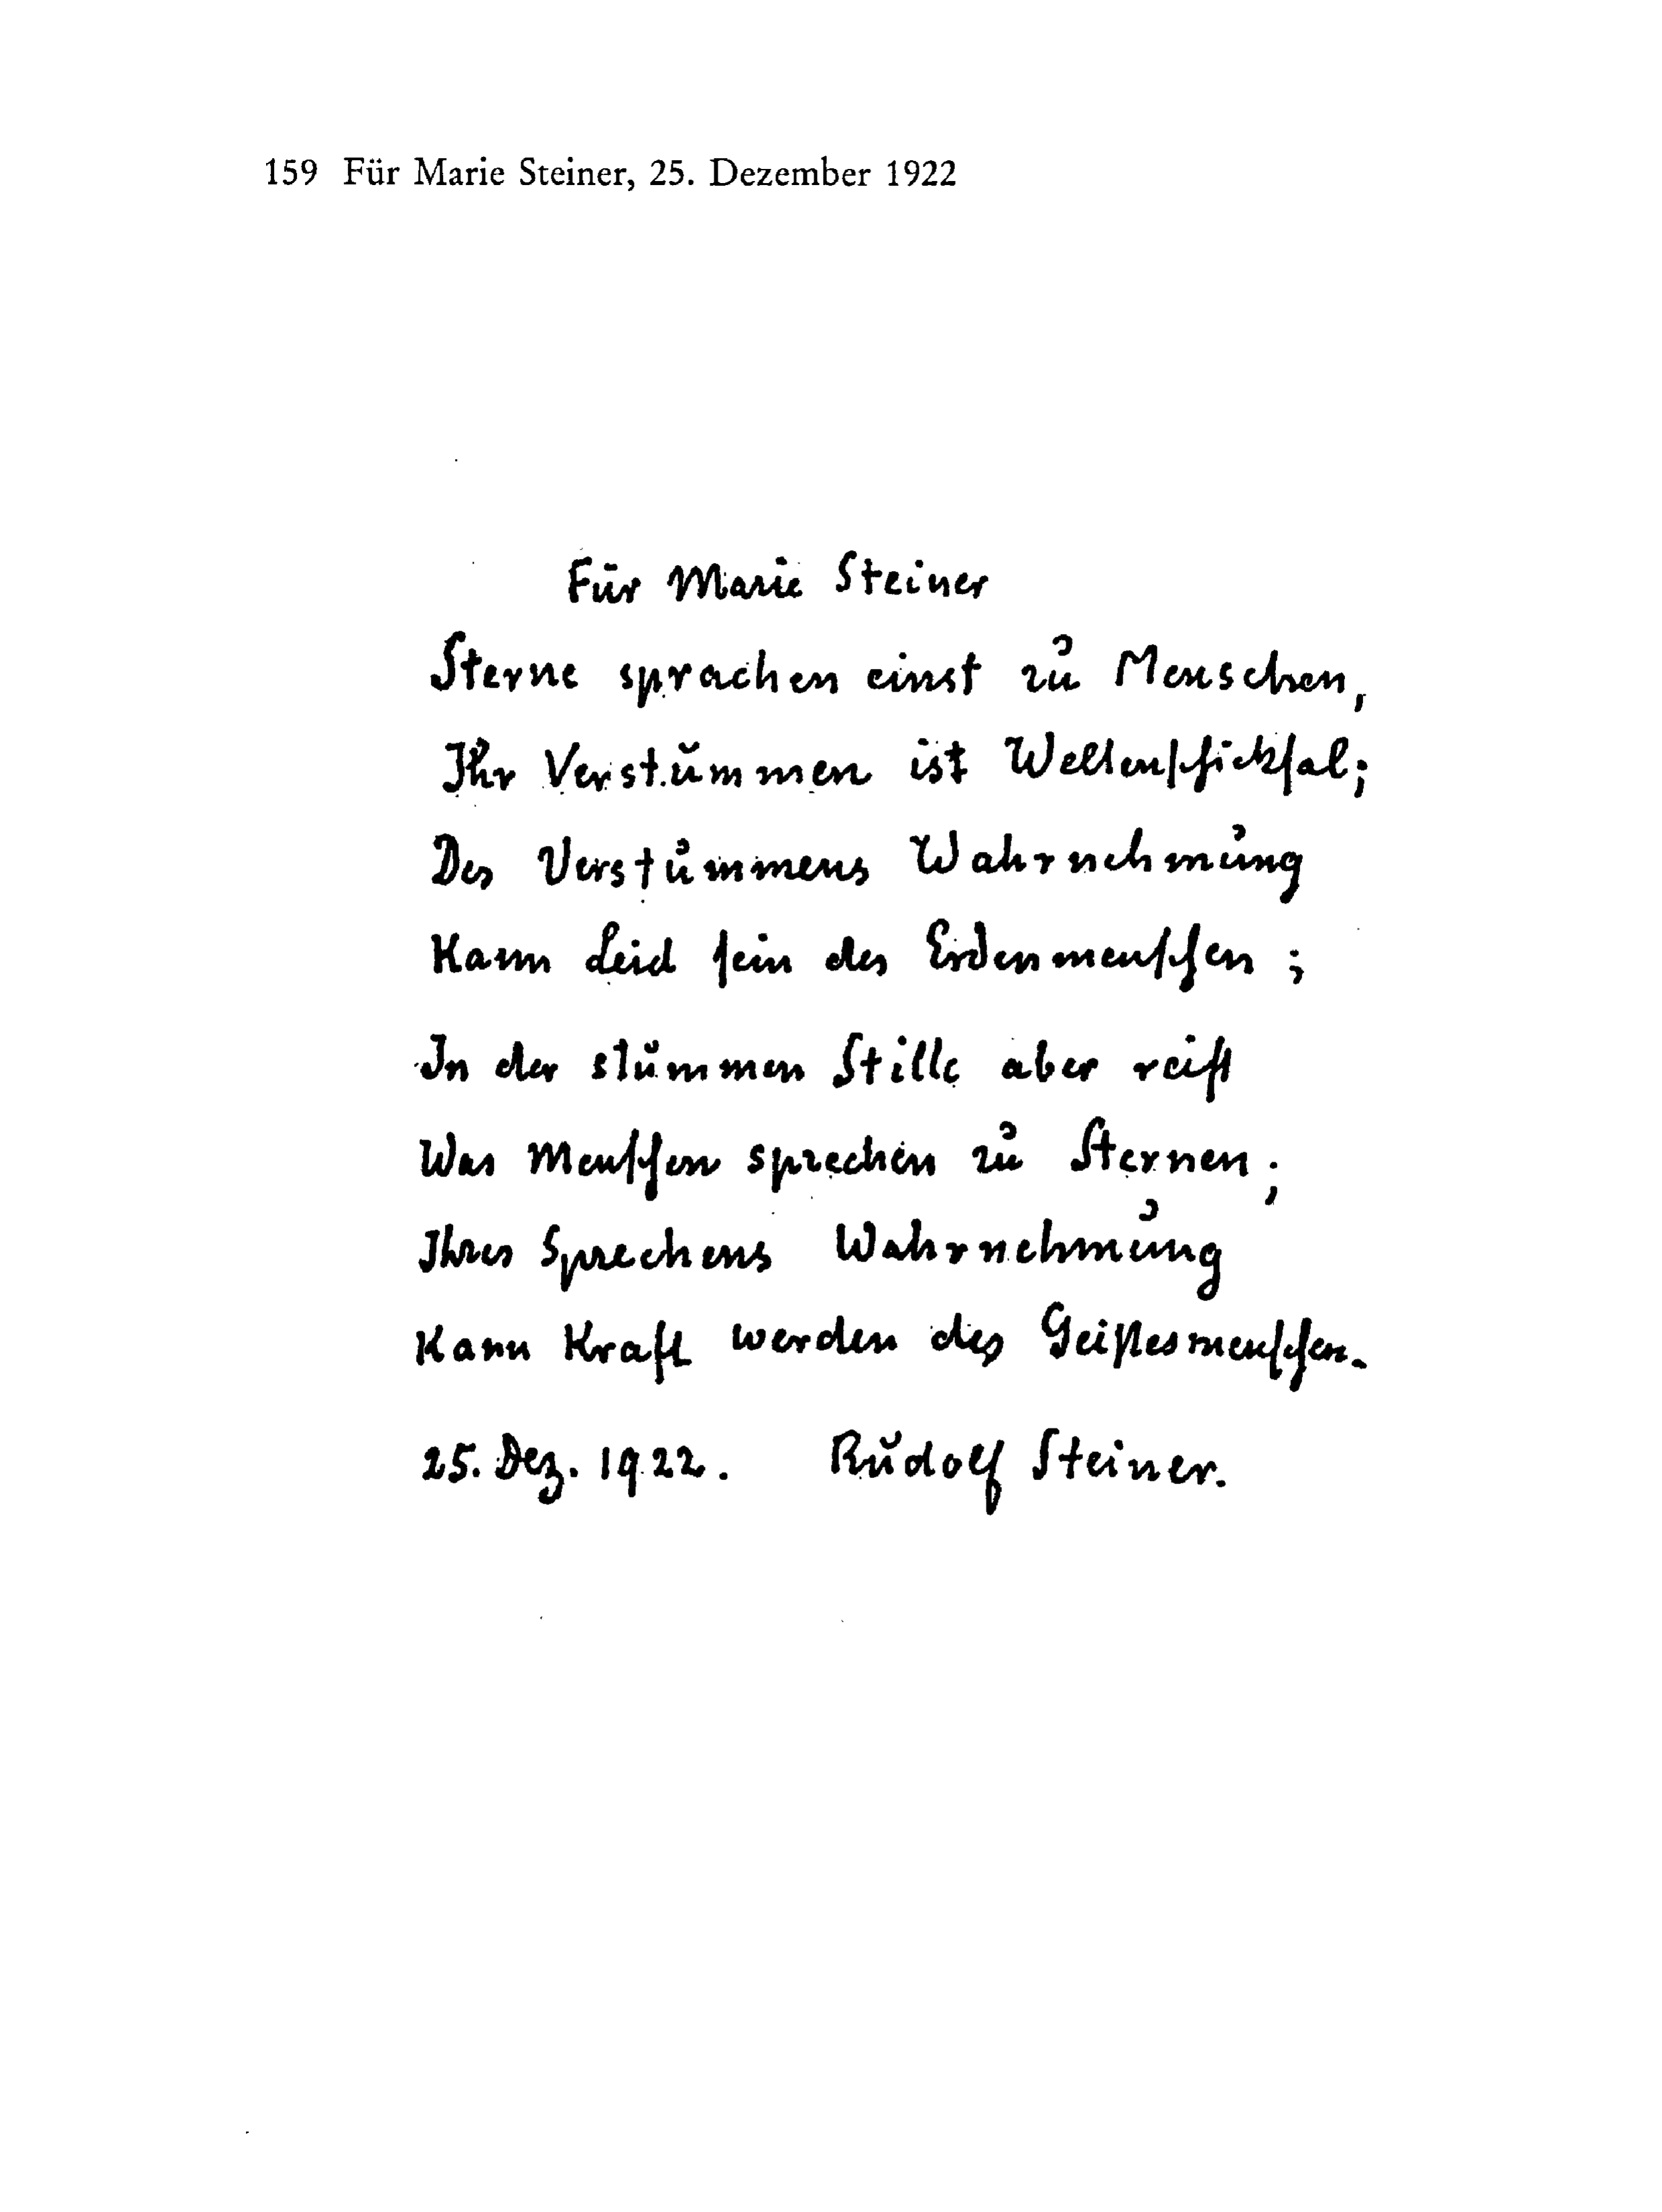 159 Für Marie Steiner, 25. Dezember 1922
Für Marie Steiner
Sterne sprachen einst zu Menschen,
Ihr Verstummen ist Weltenschicksal;
Des Verstummens Wahrnehmung
Kann Leid sein des Erdenmenschen;
In der stummen Stille aber reift
Was Menschen sprechen zu Sternen;
Ihres Sprechens Wahrnehmung
Kann Kraft werden des Geistesmenschen.
25. Dez. 1922. Rudolf Steiner.